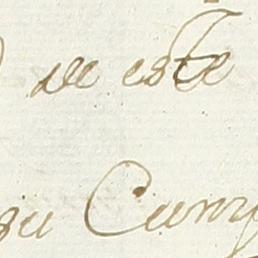 de este
su Cump